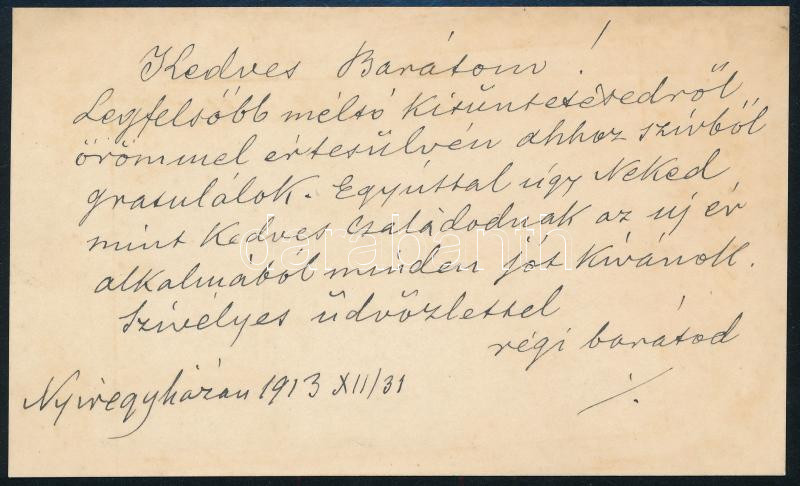 Kedves Barátom!
Legfelsőbb méltó kitüntetésedről
örömmel értesülvén ahhoz szívből
gratulálok. Egyúttal úgy Neked
mint Kedves családodnak az új év
alkalmából minden jót kívánok.
Szívélyes üdvözlettel
régi barátod
Nyíregyházán 1913 XII/31
./.
darabanth